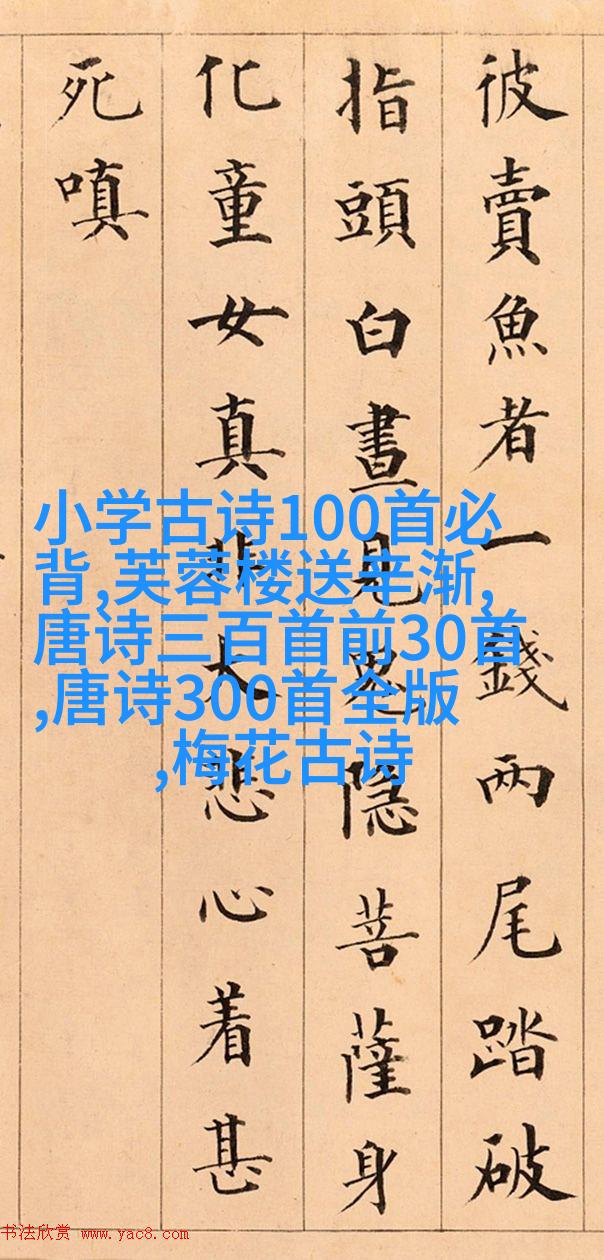 彼賣魚者一錢兩尾踏破
指頭白晝見鬼隱菩薩身
化童女真非大悲心着甚
死嗔
小学古诗100首必
背,芙蓉楼送辛渐,
唐诗三百首前30首
,唐诗300首全版
,梅花古诗
书法欣赏 www.yac8.com